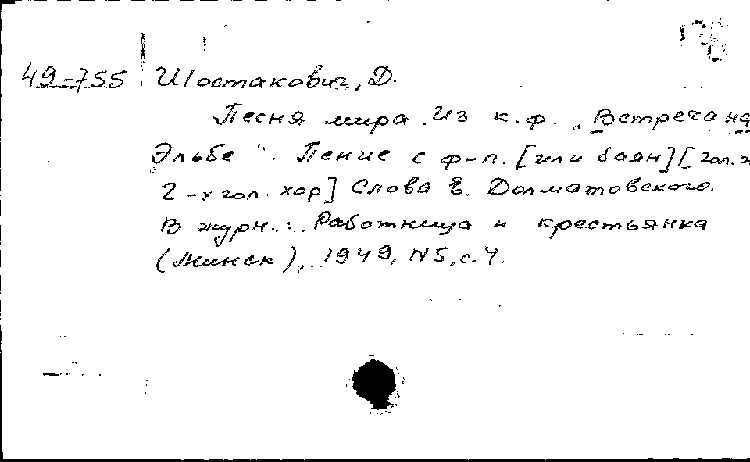 49-755 Шостакович, Д.
Песня мира. Из к.ф. „Встреча на
Эльбе". Пение с ф-п. [или баян] [гол. и
2-х гол. хор] Слова Е. Долматовского.
В журн.: Работница и крестьянка
(Минск), 1949, N5, с. 4.